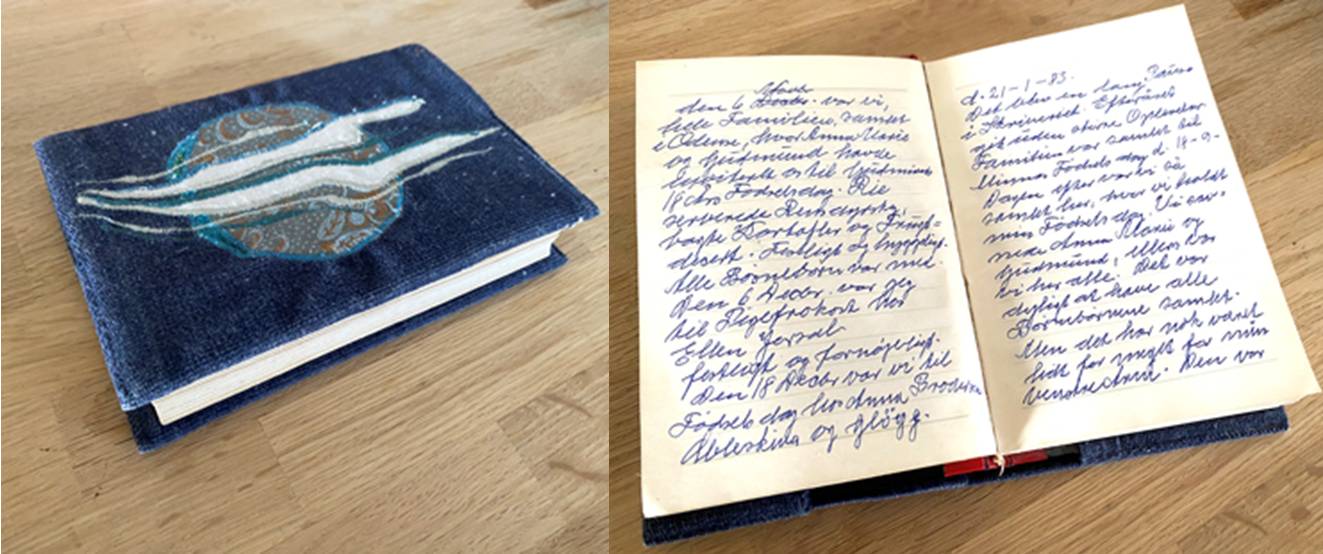 Novb
den 6 Decbr. var vi,
hele Familien, samlet
i Odense, hvor Anna Marie
og Gudmund havde
inviteret os til Gudmunds
18 Års Fødselsdag. Rie
serverede Rensdyrsteg,
bagte Kartofler og Frugt-
desert. Festligt og hyggeligt.
Alle Börnebörn var med.
Den 6 Decbr. var jeg
til Pigefrokost hos
Ellen
festligt og fornøjeligt.
Den 18 Decbr var vi til
Fødselsdag hos Anna Brodersen
Æbleskiva og glögg.
d. 21-1-83.
Det blev en lang Pause
i Skriveriet. Efteråret
gik uden større Oplevelser
Familien var samlet til
Minnas Fødselsdag d. 18-9-
Dagen efter var vi så
samlet her, hvor vi holdt
min Fødselsdag. Vi sav-
nede Anna Marie og
Gudmund, ellers var
vi her alle. Det var
dejligt at have alle
Börnbörnene samlet.
Men det har nok været
lidt for meget for min
venstre Arm. Den var